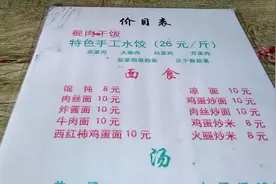 价目表
瓮肉干饭
特色手工水饺（26 元／斤）
韭菜肉 大葱肉 白菜肉 芹菜肉
面食
馄饨 8 元 凉面 10 元
肉丝面 10 元 鸡蛋炒面 10 元
炸酱面 10 元 肉丝炒面 10 元
牛肉面 10 元 鸡蛋炒米 8 元
西红柿鸡蛋面 10 元 火腿炒米 8 元
汤